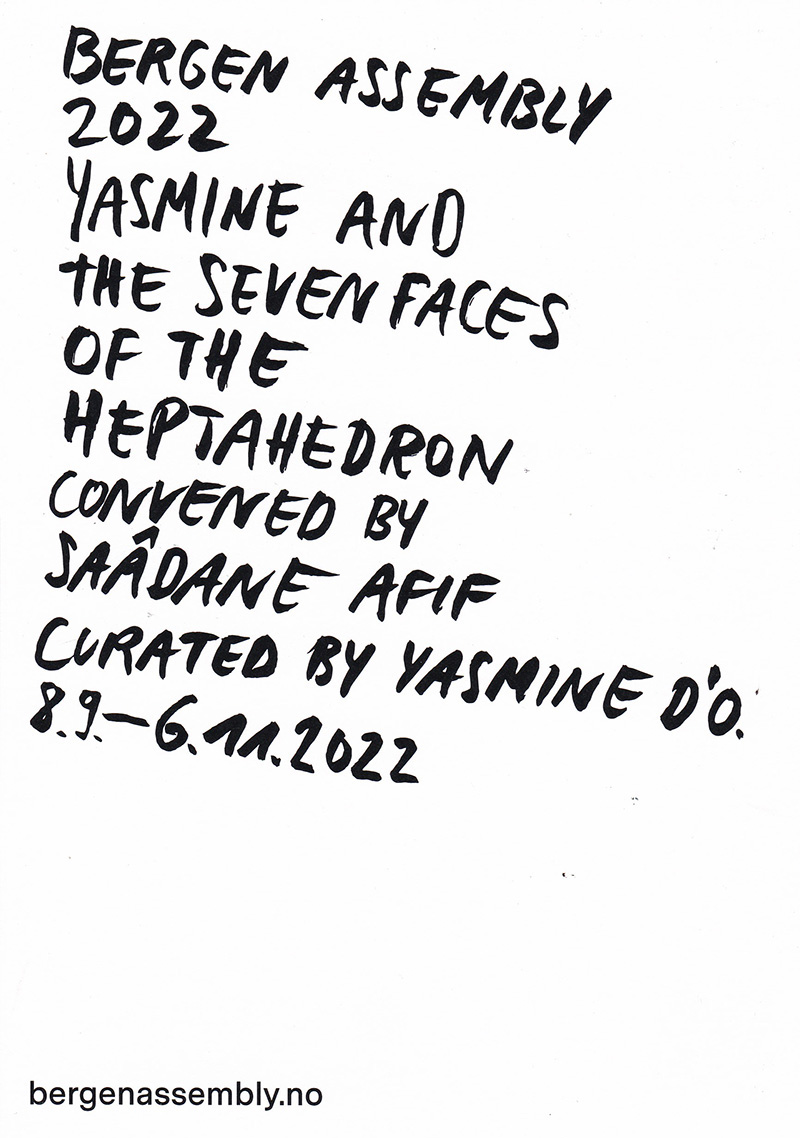 BERGEN ASSEMBLY
2022
YASMINE AND
THE SEVEN FACES
OF THE
HEPTAHEDRON
CONVENED BY
SAÂDANE AFIF
CURATED BY YASMINE D'O.
8.9.—6.11.2022
bergenassembly.no